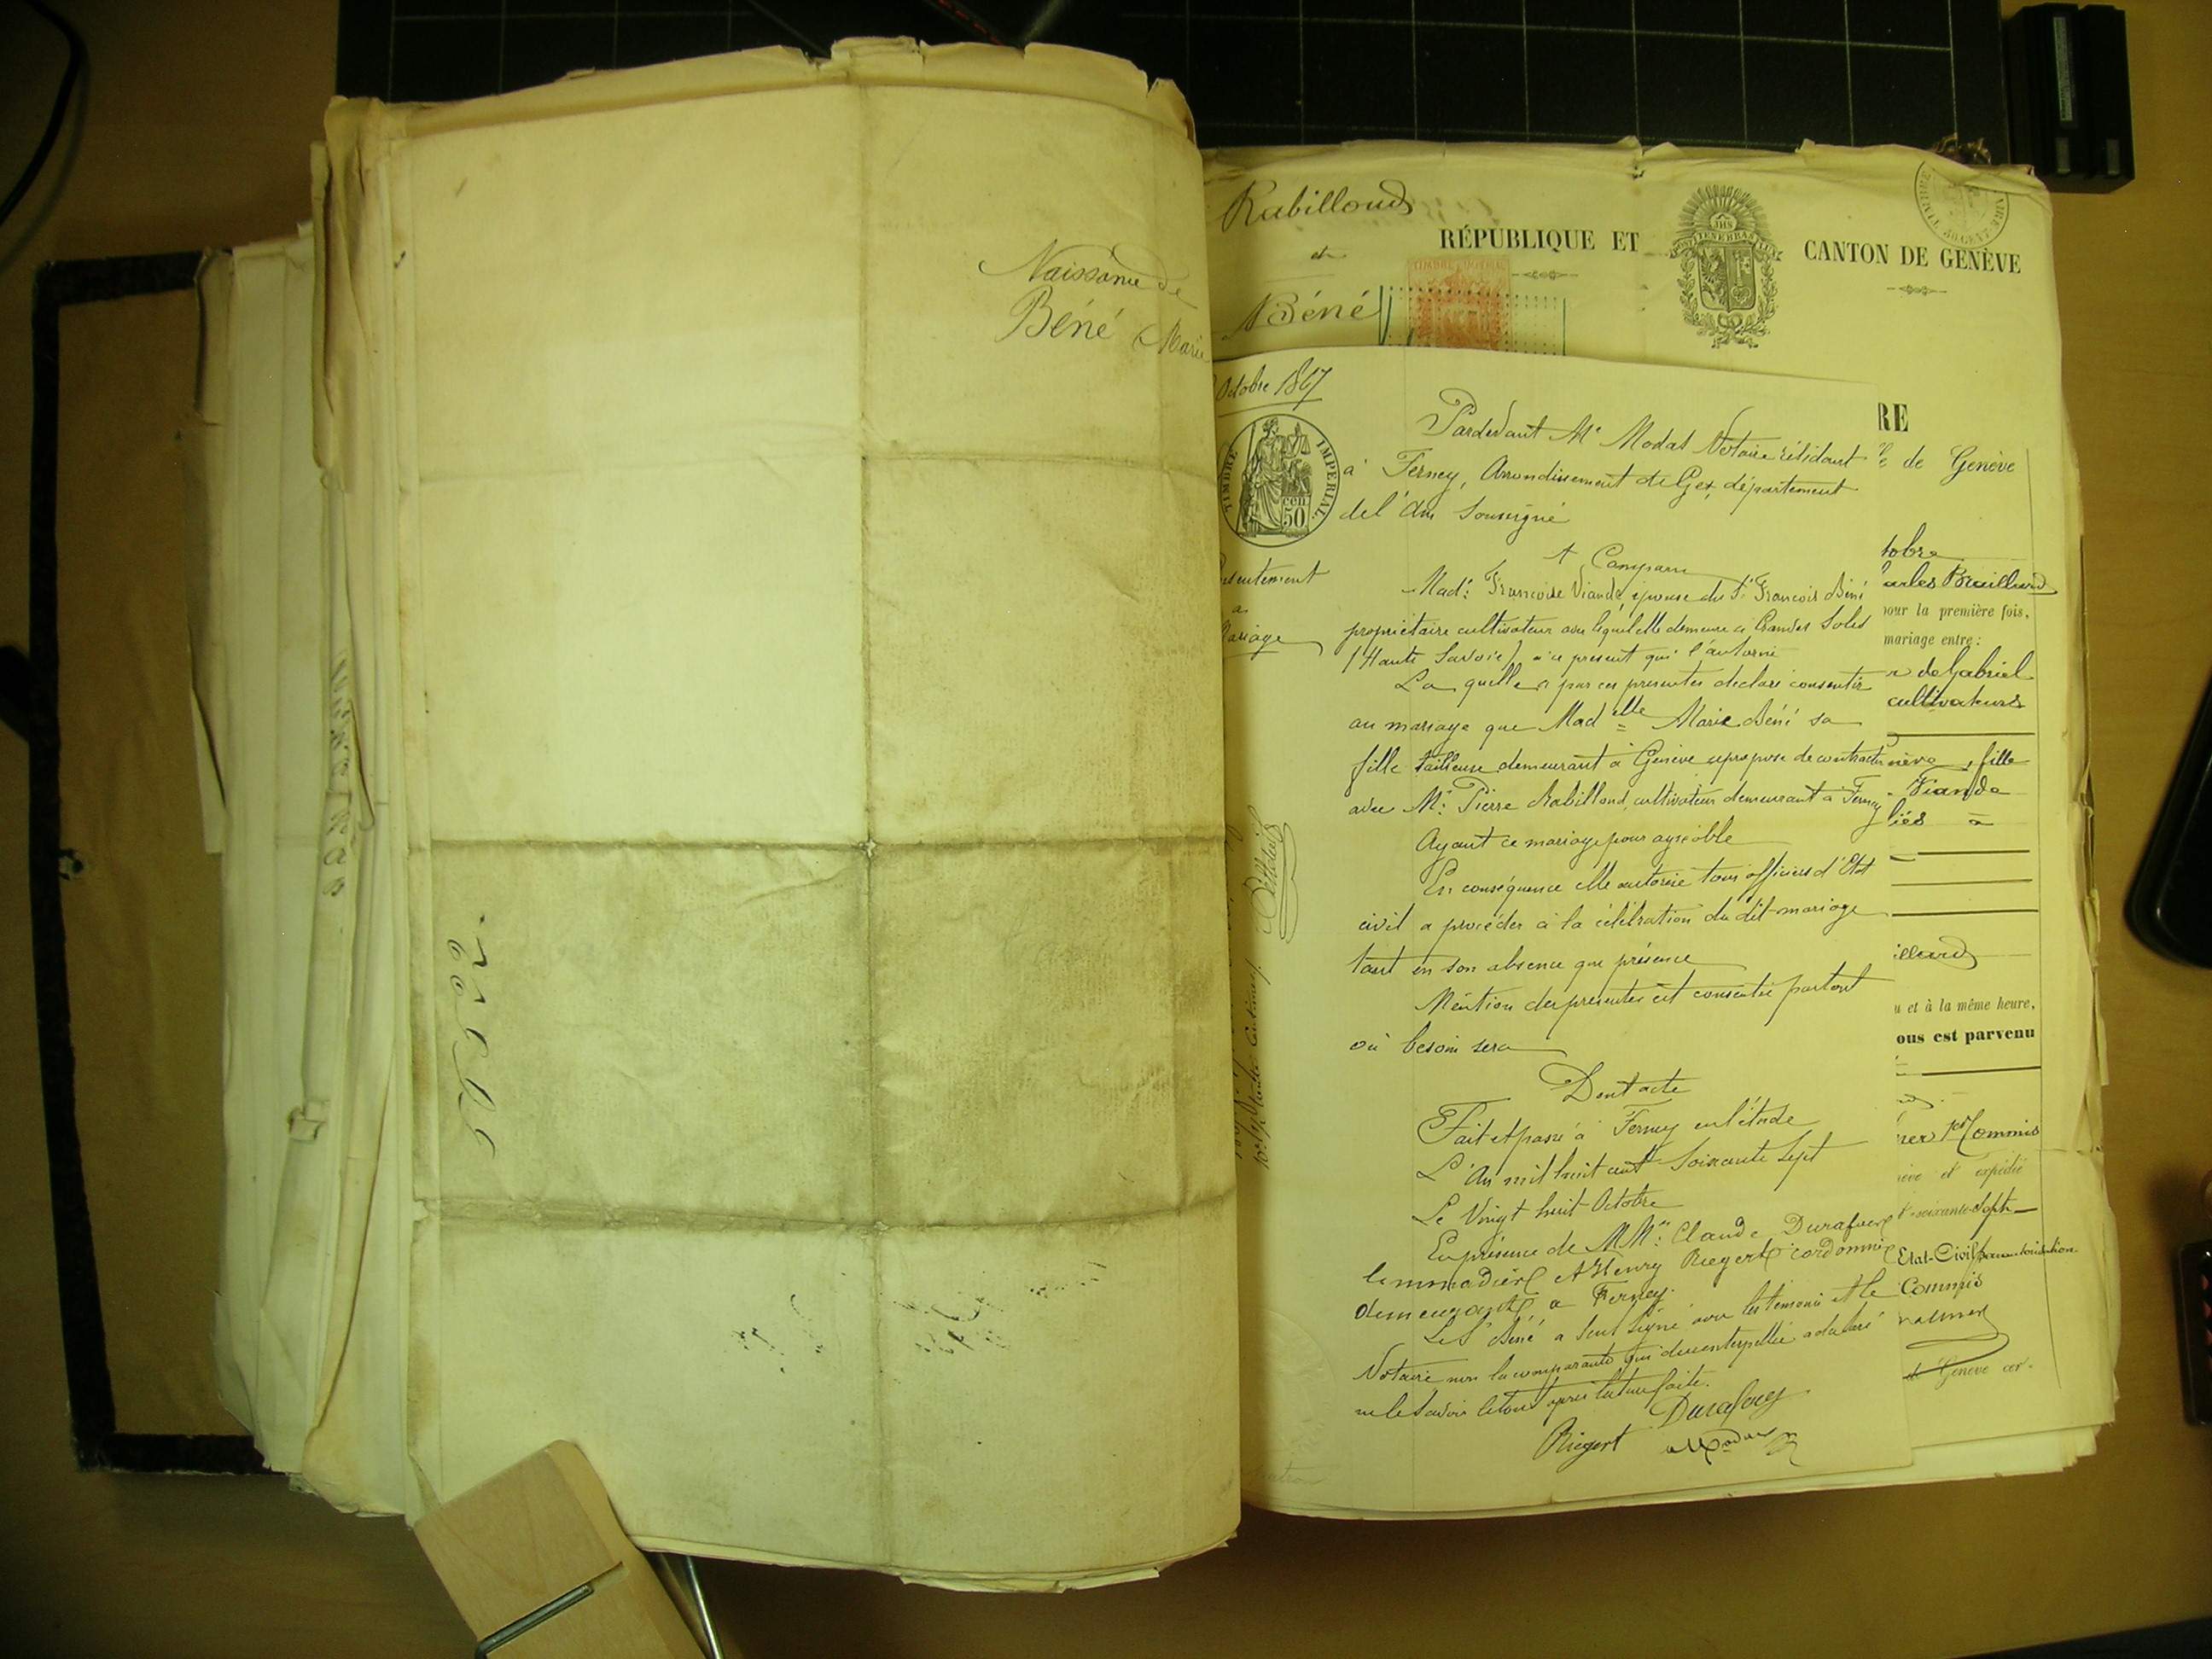 Naissance de
Béné Marie
Rabilloud
et
Béné
RÉPUBLIQUE ET CANTON DE GENÈVE
POST TENEBRAS LUX
JHS
Octobre 1867
TIMBRE IMPÉRIAL
50 cen
Consentement
a
Mariage
Pardevant Me Modat Notaire résidant
à Ferney, Arrondissement de Gex, département
de l'Ain Soussigné
A Comparu
Made Francoise Viande épouse du Sr Francois Béné
propriétaire cultivateur avec lequel elle demeure a
(Haute Savoie) a ce present qui l'autorise
La quelle a par ces presentes declaré consentir
au mariage que Madelle Marie Béné sa
fille tailleuse demeurant à Genève se propose de contracter
avec Mr Pierre Rabilloud, cultivateur demeurant à Ferney
Ayant ce mariage pour agréable
En conséquence elle autorise tous officiers d'Etat
civil a procéder à la célébration du dit mariage
tant en son absence que présence
Mention des presentes est consentie partout
où besoin sera
Dont acte
Fait et passé à Ferney en l'étude
L'An mil huit cent Soixante Sept
Le Vingt huit Octobre
En présence de MMrs Claude Durafour
limonadier et Henry Riegert cordonnier
demeurant a Ferney.
Le Sr Béné a seul signé avec les temoins et le
Notaire non la comparante qui de ce interpellée a declaré
ne le savoir le tout apres lecture faite.
Riegert
RE
de Genève
tobre
arles Braillard
pour la première fois,
mariage entre:
de Gabriel
cultivateurs
nève, fille
Viande
liés à
illard
u et à la même heure,
ous est parvenu
Commis
ève et expédié
soixante-sept
Etat-Civil
Commis
de Genève cer-